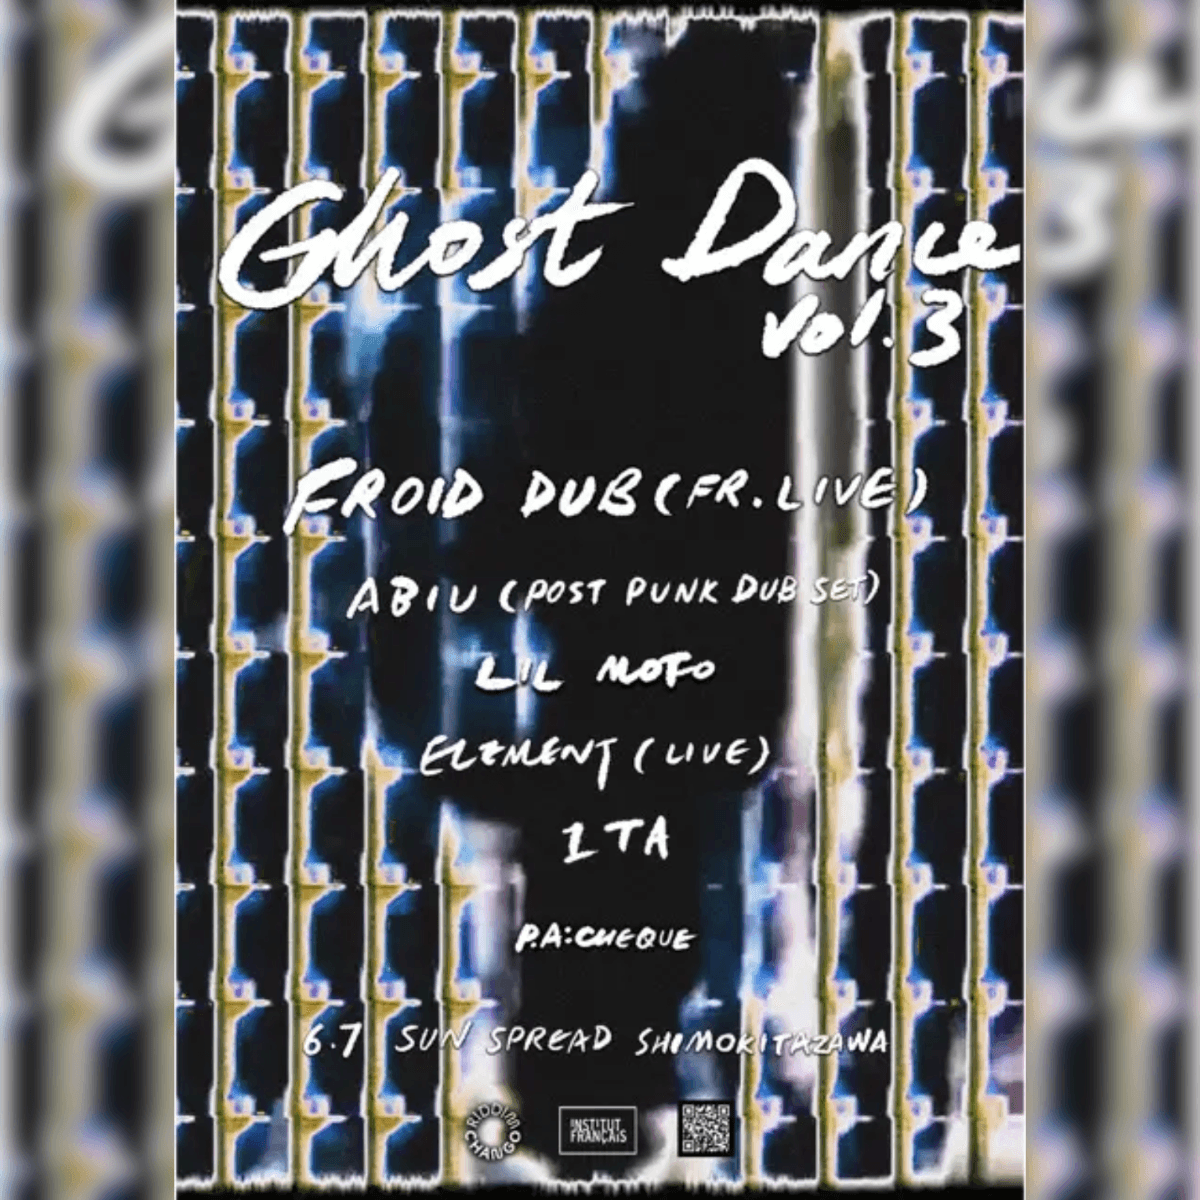 Ghost Dance
Vol.3
FROID DUB (FR. LIVE)
ABIU (POST PUNK DUB SET)
LIL MOFO
ELEMENT (LIVE)
1TA
P.A:CHEQUE
6.7 SUN SPREAD SHIMOKITAZAWA
RIDDIM CHANGO
INSTITUT
FRANÇAIS